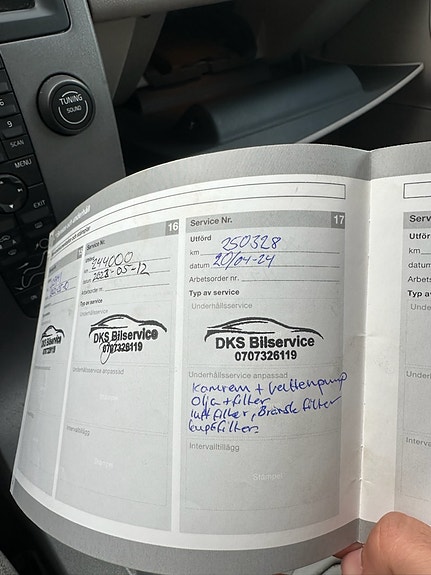 TUNING
SOUND
6
9
SCAN
MENU
EXIT
16
Service Nr.
244000
2023-05-12
Arbetsorder nr.
Typ av service
Underhållsservice
DKS Bilservice
0707326119
Underhållsservice anpassad
Intervalltillägg
Service Nr. 17
Utförd
km 250328
datum 20/04-24
Arbetsorder nr.
Typ av service
Underhållsservice
DKS Bilservice
0707326119
Underhållsservice anpassad
Kamrem + Vattenpump
Olja + filter
luftfilter, Bränsle filter
kupefilter.
Intervalltillägg
Stämpel